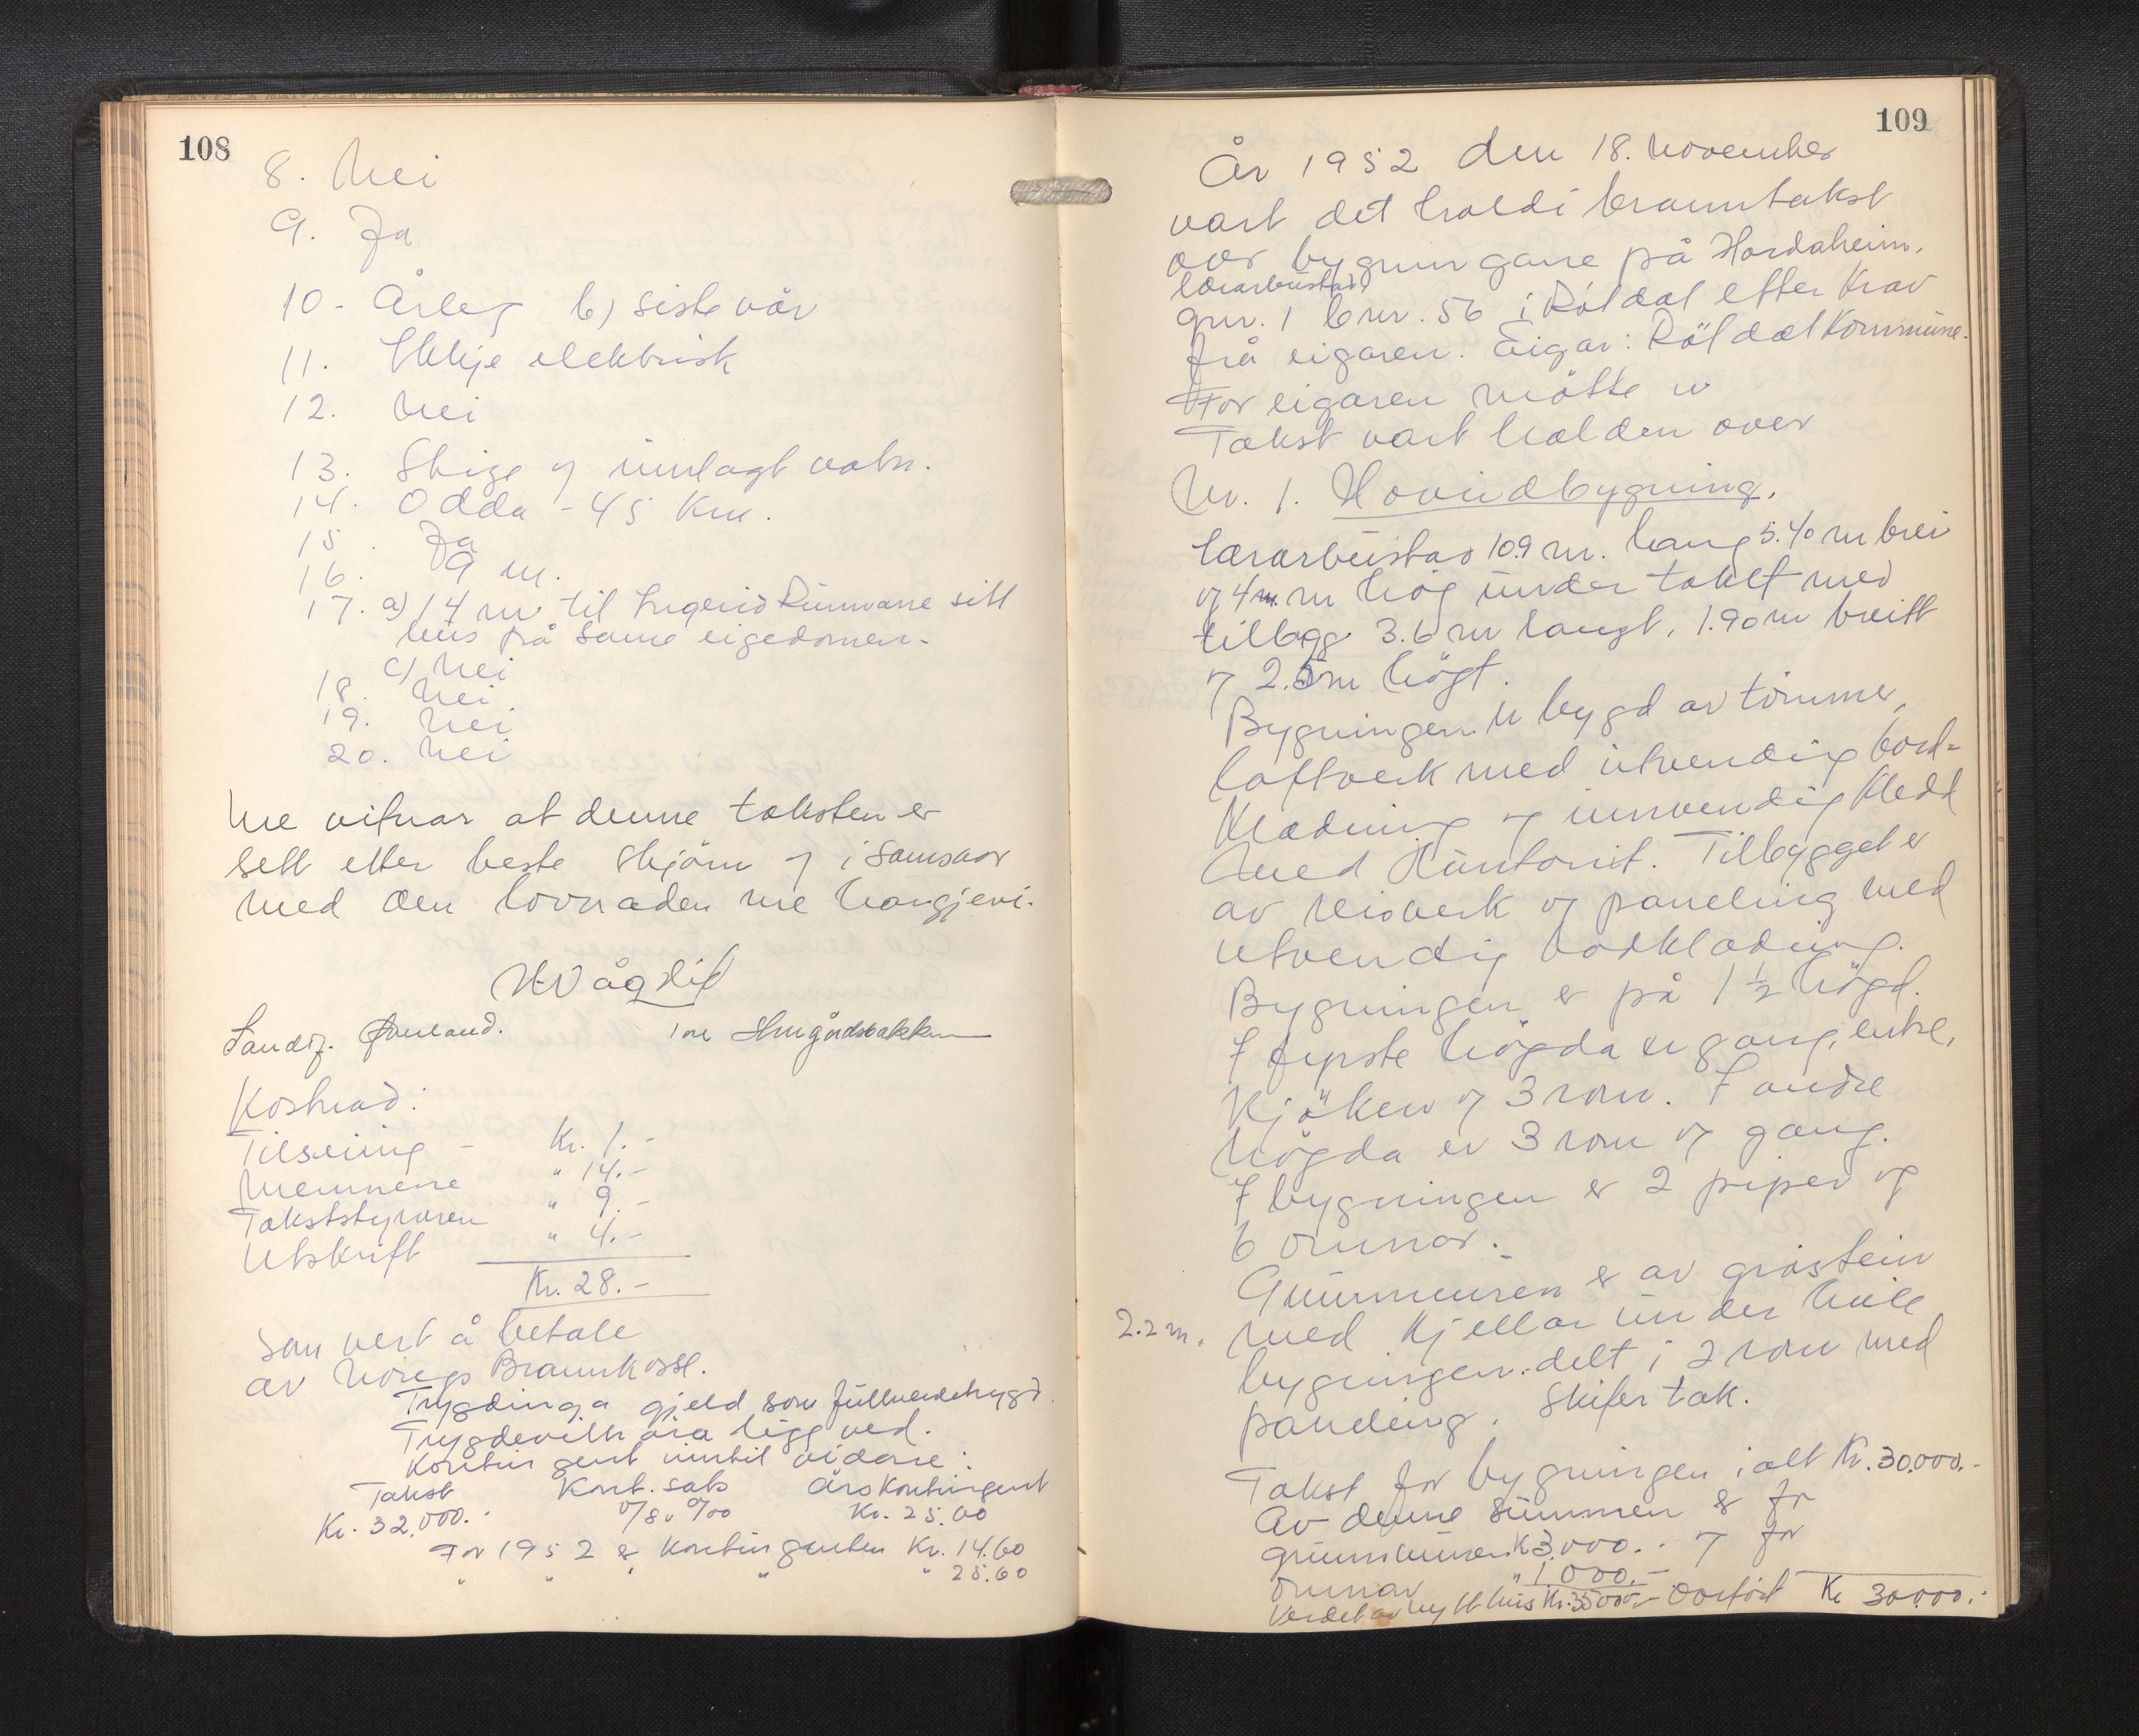 108
8. Nei
9. Ja
10. Årleg b) siste vår
11. Ikkje elektrisk
12. Nei
13. Stige og innlagt vatn.
14. Odda - 45 Km.
15. Ja
16. 9 m.
17. a) 14 m til Ingerid sitt
hus på same eigedomen.
c) Nei
18. Nei
19. Nei
20. Nei
Me vitnar at denne taksten er
sett etter beste skjön og i samsvar
med den lovnaden me har gjevi.
Kostnad:
Tilseiing - Kr. 1.-
Mennene " 14.-
Takststyraren " 9.-
Utskrift " 4.-
Kr. 28.-
som vert å betale
av Noregs Brannkasse.
Trygdinga gjeld som fullverdetrygd.
Trygdevilkåra ligg ved.
Kontingent inntil vidare:
Takst Kont. sats Årskontingent
Kr. 32.000.- 0/80 o/oo Kr. 25.60
For 1952 er kontingenten Kr. 14.60
" " " " " 25.60
109
År 1952 den 18. november
vart det haldi branntakst
over bygningane på Hordaheim,
lærarbustad,
gnr. 1 bnr. 56 i Röldal etter krav
frå eigaren. Eigar: Röldal Kommune.
For eigaren mötte
Takst vart halden over
Nr. 1. Hovudbygning.
lærarbustad 10.9 m. lang 5.40 m brei
og 4 m hög under taket med
tilbygg 3.6 m langt, 1.90 m breitt
og 2.5 m högt.
Bygningen er bygd av tömmer,
laftverk med utvendig bord-
klædning og innvendig kledd
med Huntonit. Tilbygget er
av reisverk og paneling med
utvendig bordklædning.
Bygningen er på 1 ½ högd.
I fyrste högda er gang,
kjöken og 3 rom. I andre
högda er 3 rom og gang.
I bygningen er 2 piper og
6 omnar.
Grunnmuren er av gråstein
2.2 m. med kjellar under heile
bygningen. delt i 2 rom med
paneling. Skifertak.
Takst for bygningen i alt Kr. 30.000.-
Av denne summen er for
grunnmuren Kr 3.000.- og for
omnar " 1.000.-
Verdet av nytt hus Kr. 35000.- Overfört Kr 30.000.-